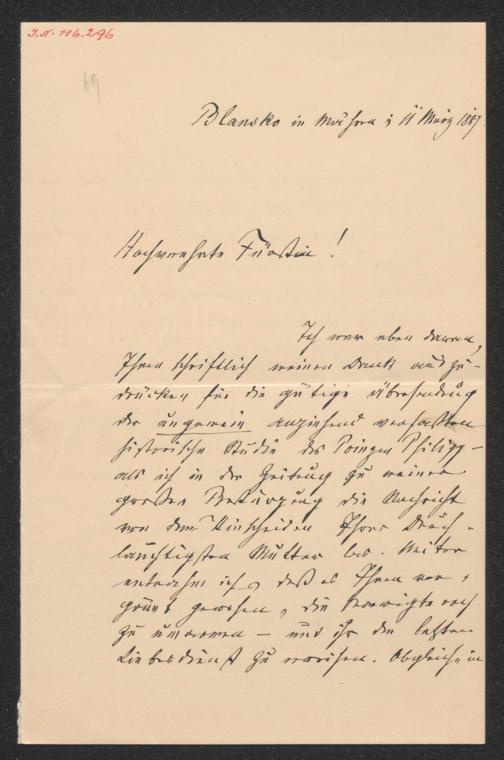 J.N. 116.296
69
Blansko in Mähren 11 März 1887
Hochverehrte Fürstin!
Ich war eben daran,
Ihnen schriftlich meinen Dank auszu-
drücken für die gütige Übersendung
der ungemein anziehend verfaßten
historische Studie des Prinzen Philipp –
als ich in der Zeitung zu meiner
großen Bestürzung die Nachricht
von dem Hinscheiden Ihrer Durch-
lauchtigsten Mutter las. Weiter
entnahm ich, daß es Ihnen ver-
gönnt gewesen, die Verewigte noch
zu umarmen – und ihr den letzten
Liebesdienst zu erweisen. Obgleich in